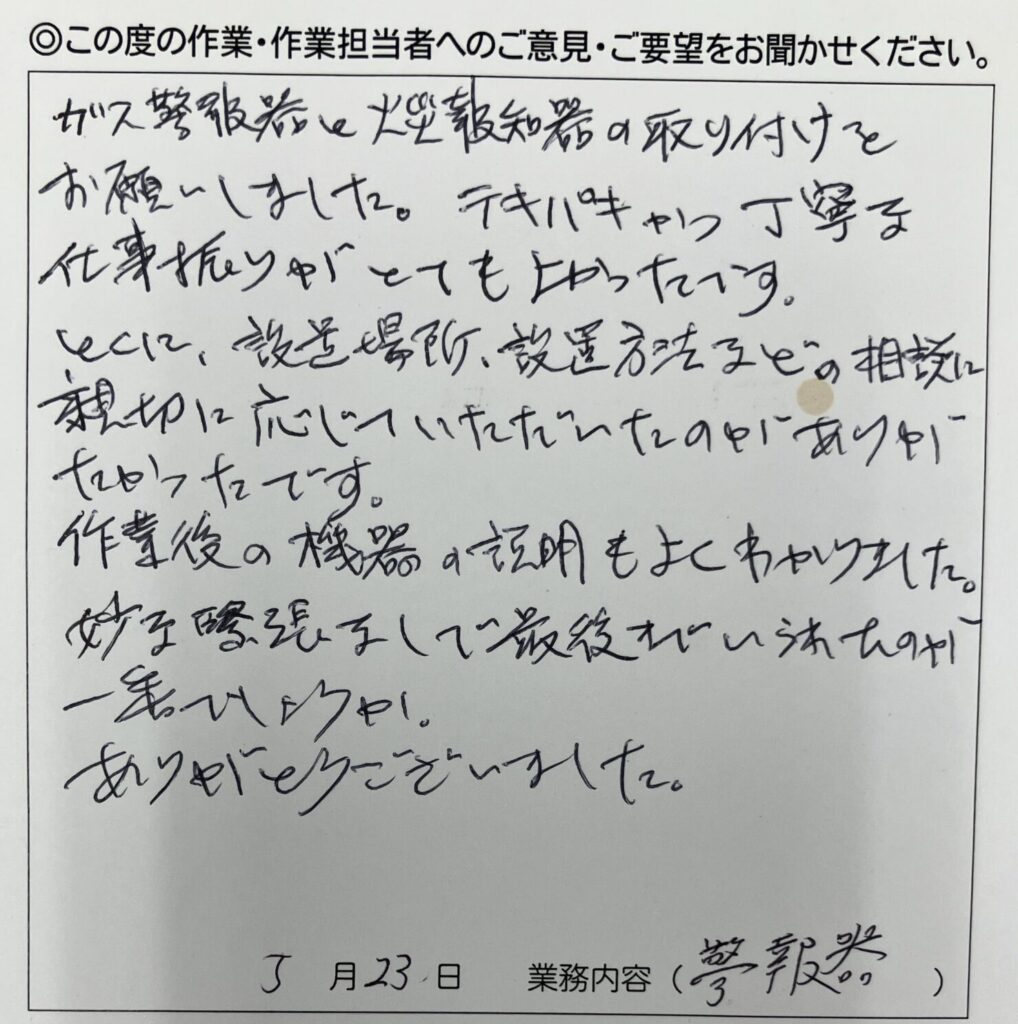 ◎この度の作業・作業担当者へのご意見・ご要望をお聞かせください。
ガス警報器と火災報知器の取り付けを
お願いしました。テキパキかつ丁寧な
仕事振りがとてもよかったです。
とくに、設置場所、設置方法などの相談に
親切に応じていただいたのがありが
たかったです。
作業後の機器の説明もよくわかりました。
妙な緊張なしで最後までいられたのが
一番でしょうか。
ありがとうございました。
月23日 業務内容(警報器)